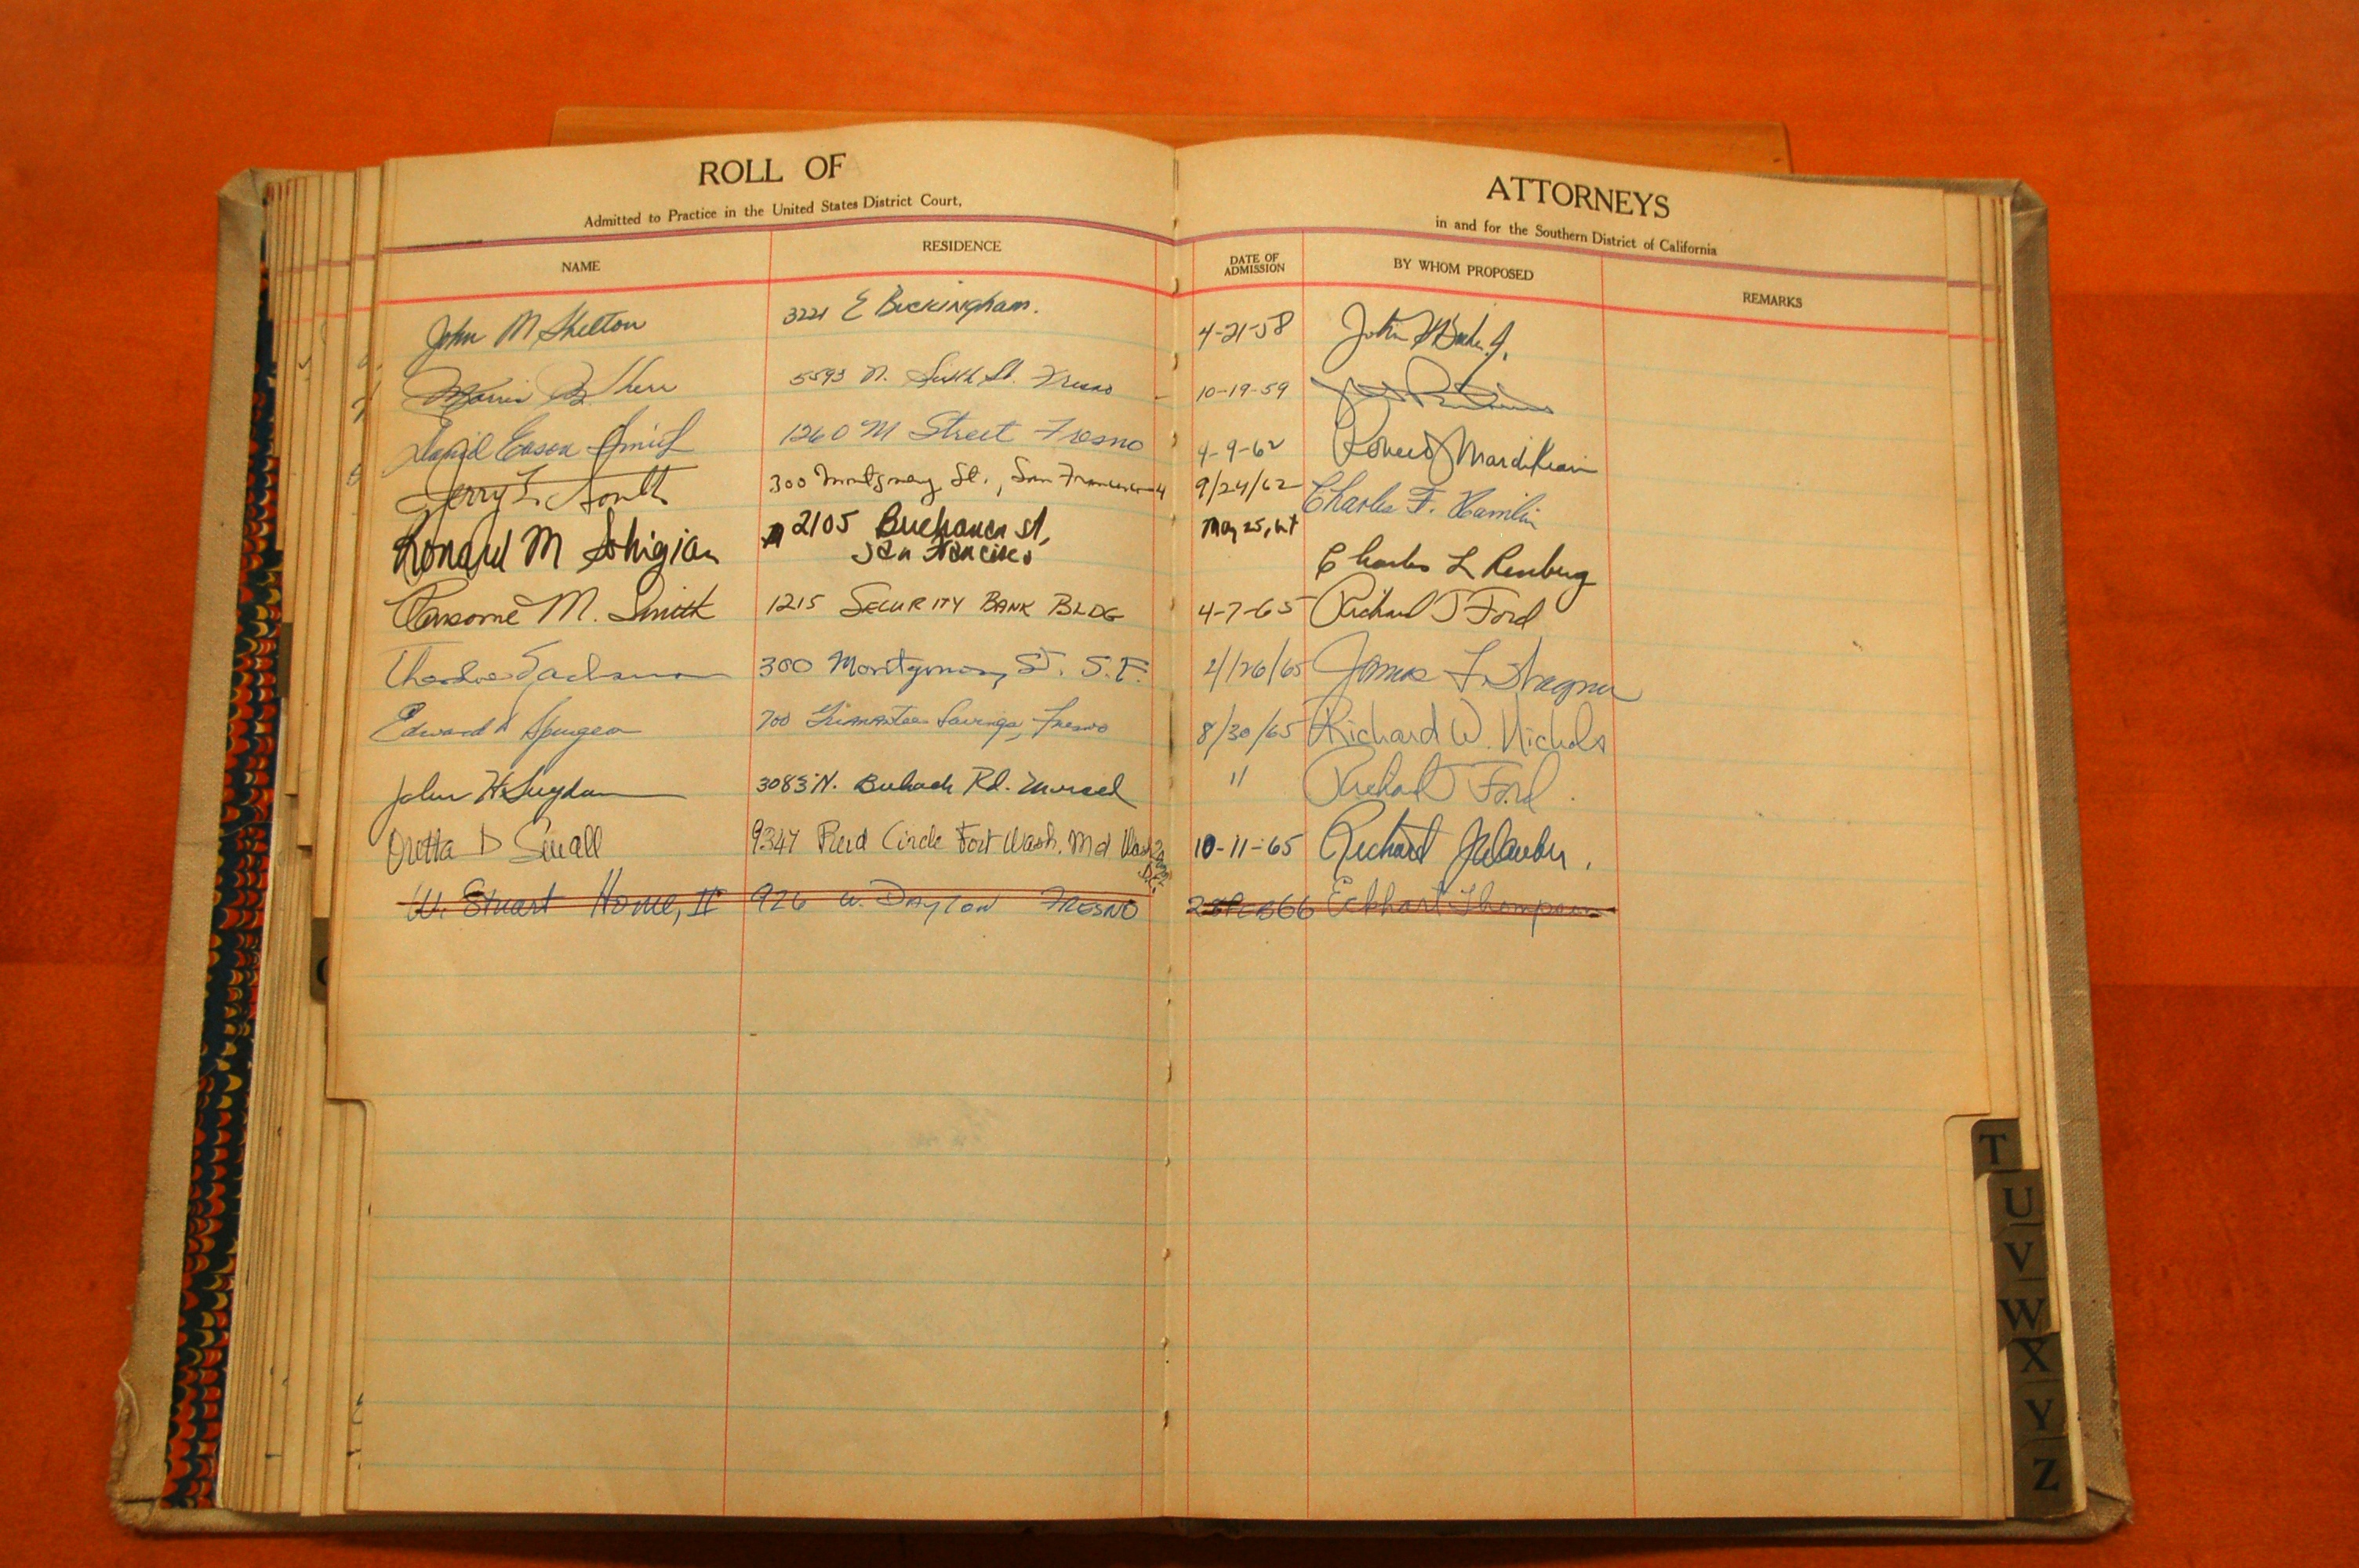 ROLL OF ATTORNEYS
Admitted to Practice in the United States District Court, in and for the Southern District of California
NAME RESIDENCE DATE OF ADMISSION BY WHOM PROPOSED REMARKS
John M Shelton 3221 E Buckingham. 4-21-58 John
Morris 5593 N. Sixth St. Fresno 10-19-59
David Eason Smith 1260 M Street Fresno 4-9-62 Robert Mardikian
Jerry L. South 300 Montgomery St., San Francisco 4 9/24/62 Charles F. Hamlin
Ronald M Sohigian 2105 Buchanan St, May 25, 64
San Francisco Charles L Renberg
Ransome M. Smith 1215 SECURITY BANK BLDG 4-7-65 Richard J Ford
300 Montgomery ST. S.F. 4/26/65 James
Edward Spurgeon 700 Guarantee Savings, Fresno 8/30/65 Richard W. Nichols
John H Suydam 3083 N. Buhach Rd. Merced " Richard J Ford.
Oretta D Small 9347 Reid Circle Fort Wash. Md Wash 10-11-65 Richard
D.C.
W. Stuart Home, II 926 W. DAYTON FRESNO 28FEB66 Eckhart Thompson
T
U
V
W
X
Y
Z